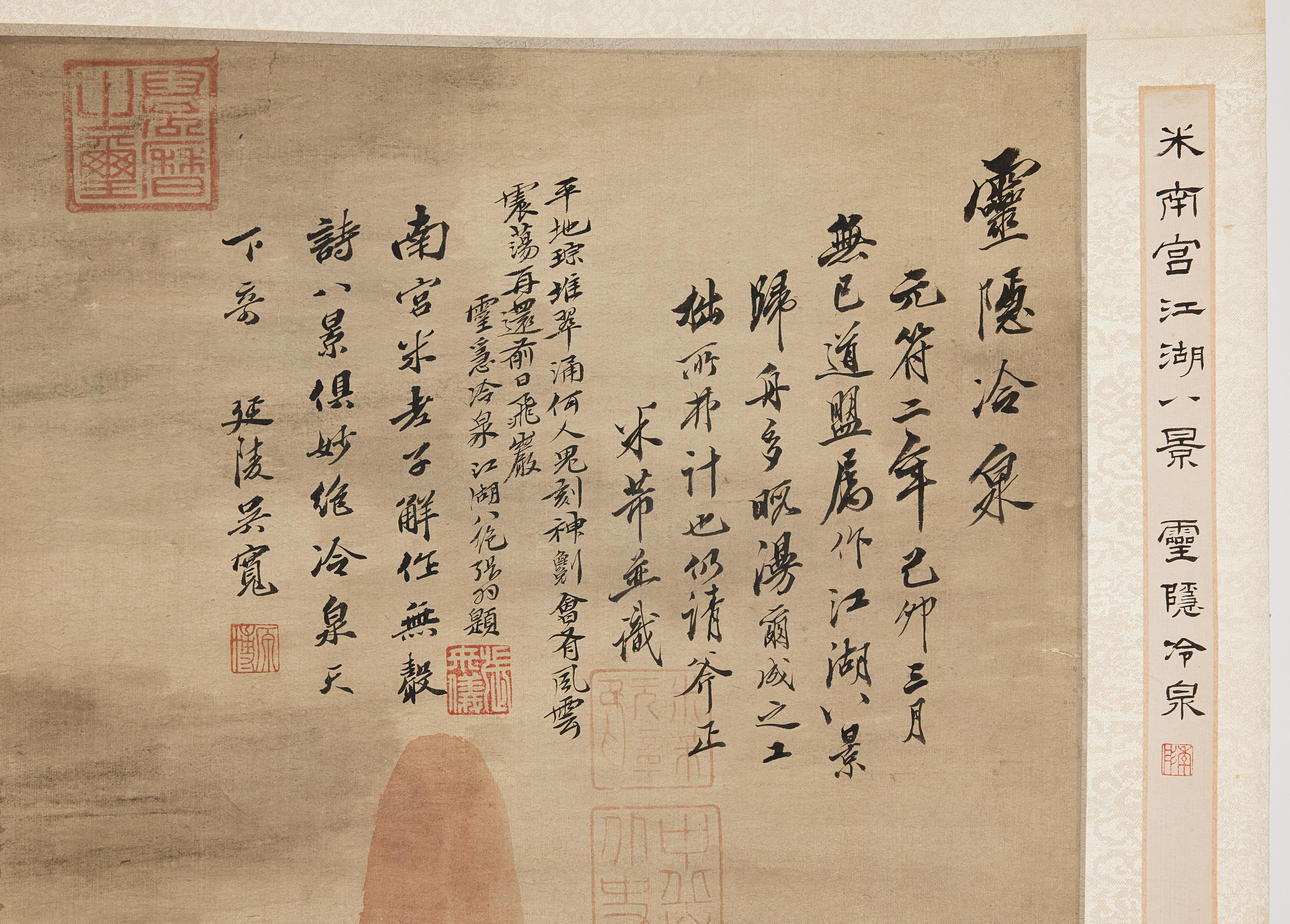 米南宮江湖八景 靈隱冷泉
靈隱冷泉
元符二年己卯三月
無已道盟属作江湖八景
歸舟多暇漫爾成之工
拙所弗計也仍請斧正
米芾並識
平地琮堆翠涌何人鬼刻神劖會看風雲
震蕩再還前日飛巖
靈隱冷泉江湖八絕張羽題
南宮米老子解作無聲
詩八景俱妙絕冷泉天
下奇 延陵吳寬
原博